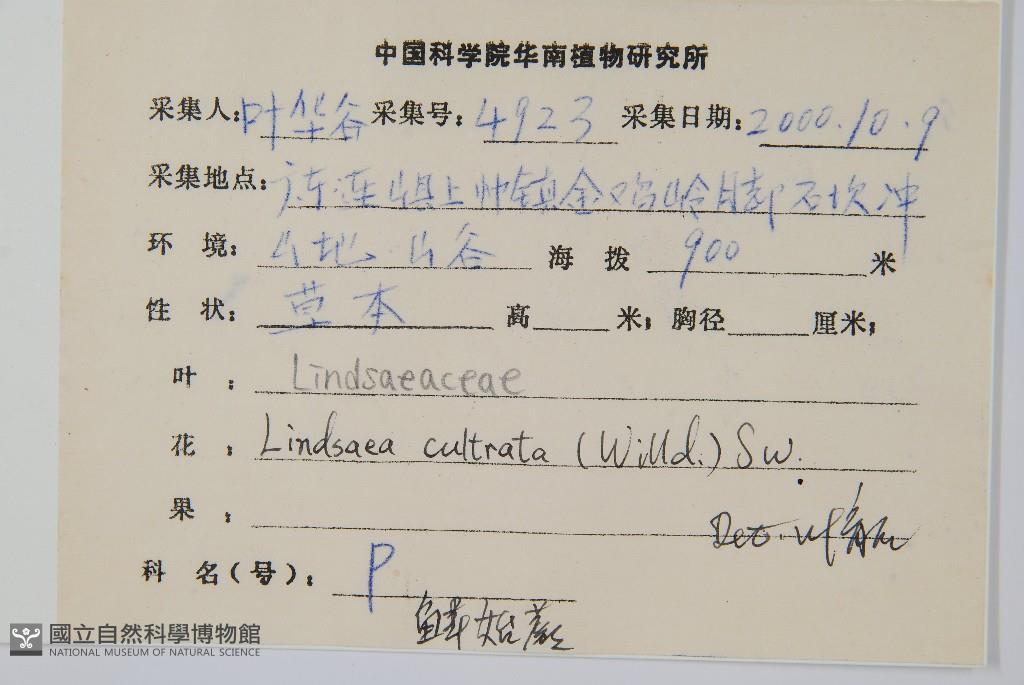 中国科学院华南植物研究所
采集人:叶华谷 采集号:4923 采集日期:2000.10.9
采集地点:广东连县上帅镇金鸡岭脚石坎冲
环 境:山地 山谷 海 拨 900 米
性 状:草本 高 米; 胸径 厘米;
叶 : Lindsaeaceae
花 : Lindsaea cultrata (Willd.) Sw.
果 :
Det. 叶
科 名(号): P
鳞始蕨
國立自然科學博物館
NATIONAL MUSEUM OF NATURAL SCIENCE